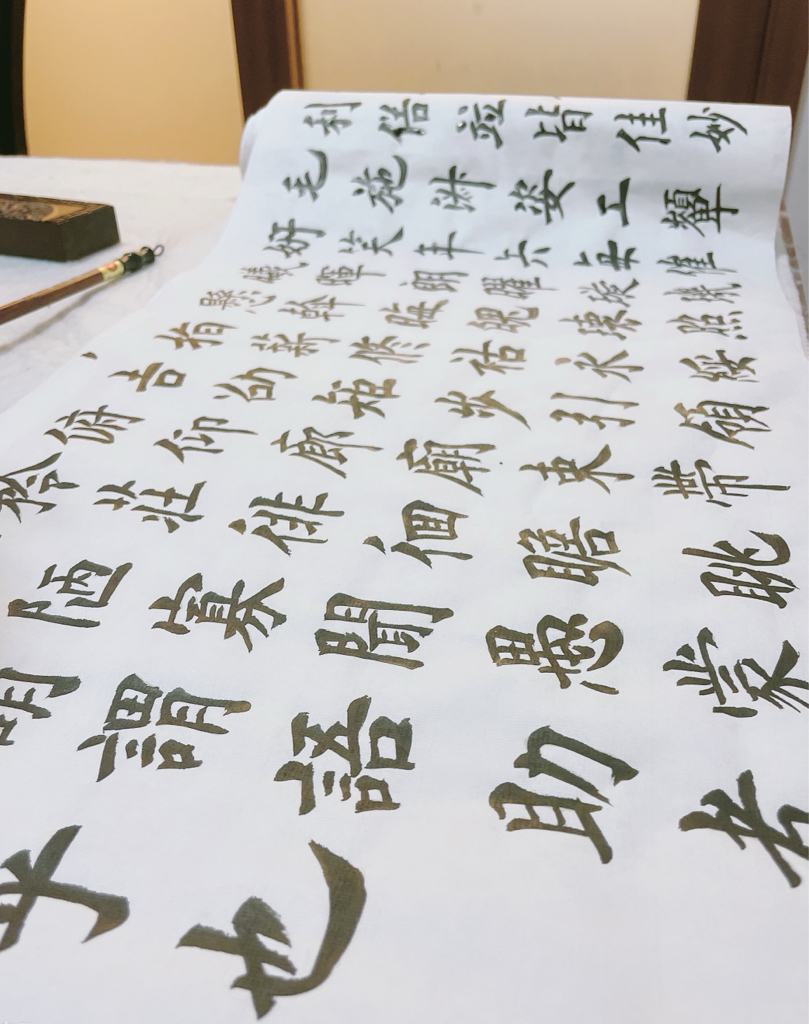 利俗竝皆佳妙
毛施淑姿工顰
妍笑年矢每催
曦暉朗曜璇璣
懸斡晦魄環照
指薪修祜永綏
吉劭矩步引領
俯仰廊廟束帶
矜莊徘徊瞻眺
陋寡聞愚蒙
誚謂語助者
乎也